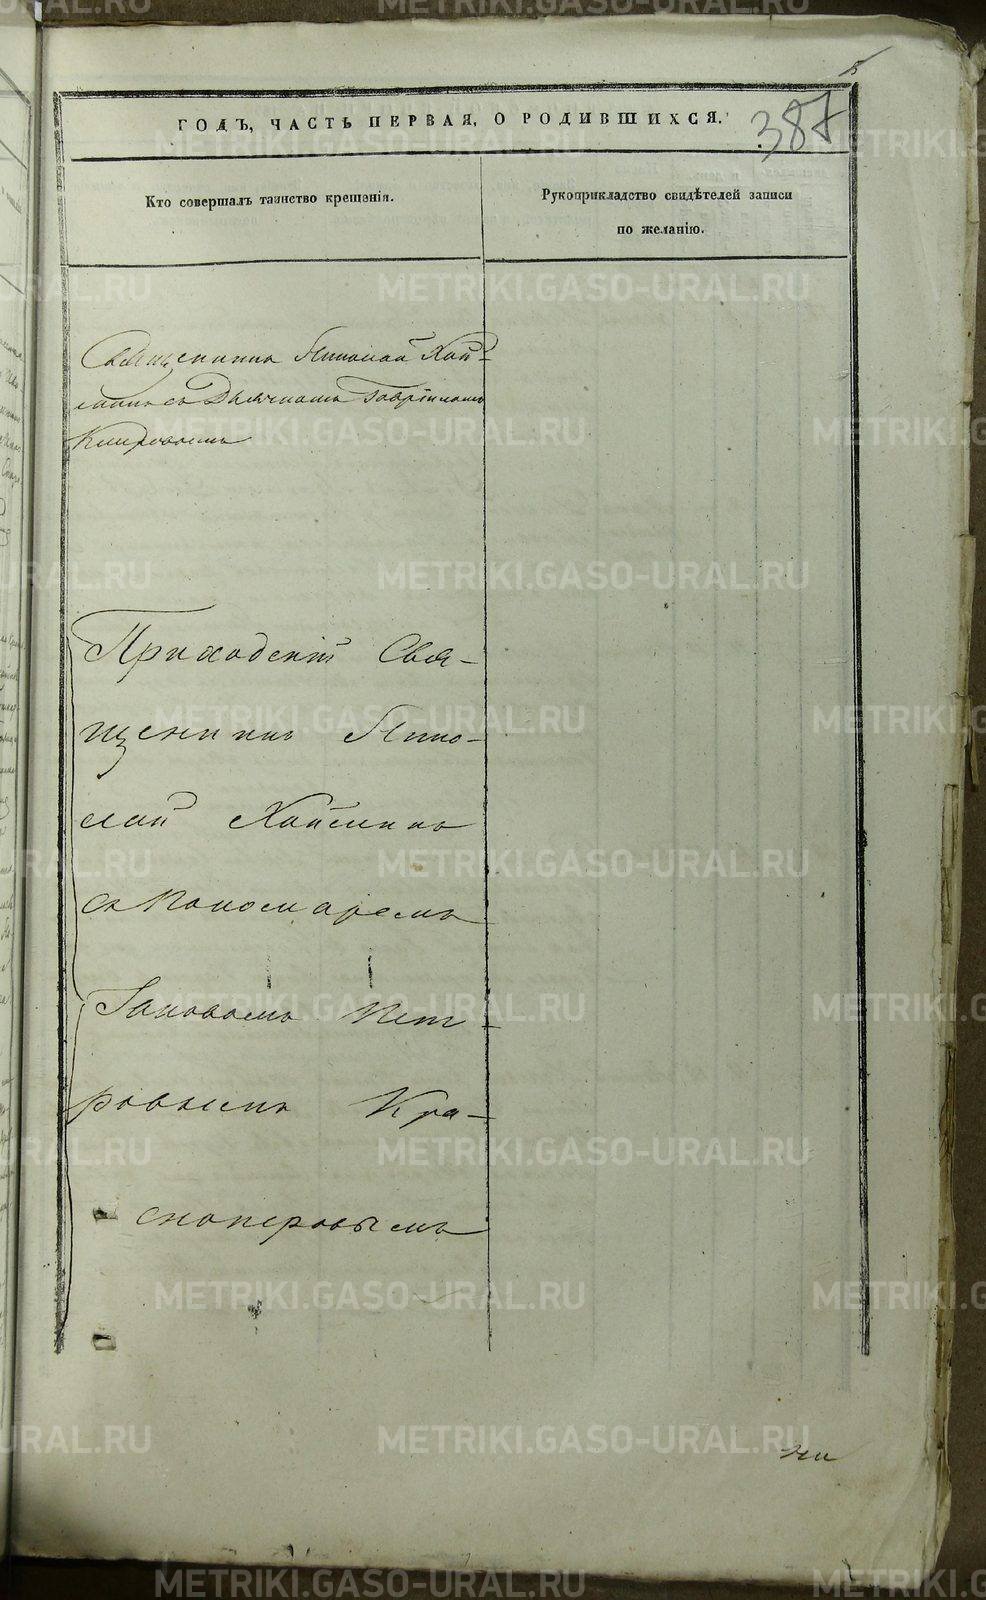 387
ГОДЪ, ЧАСТЬ ПЕРВАЯ, О РОДИВШИХСЯ.
Кто совершалъ таинство крещенія.
Рукоприкладство свидѣтелей записи
по желанію.
Священникъ Николай Хой-
съ Дьячкомъ Гавріиломъ
Приходскій Свя-
щенникъ Нико-
лай
съ Пономаремъ
Іаковомъ Пет-
ровымъ Кра-
сноперовымъ
METRIKI.GASO-URAL.RU